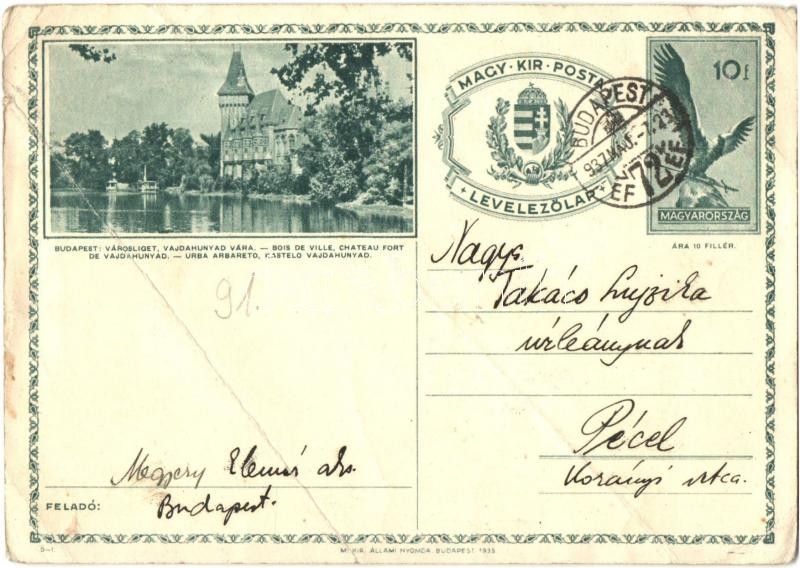 BUDAPEST: VÁROSLIGET, VAJDAHUNYAD VÁRA. — BOIS DE VILLE, CHATEAU FORT
DE VAJDAHUNYAD. — URBA ARBARETO, KASTELO VAJDAHUNYAD.
91.
MAGY·KIR·POSTA
LEVELEZŐLAP
BUDAPEST
72
10f
MAGYARORSZÁG
ÁRA 10 FILLÉR.
Nagys.
Takács Lujzika
úrleánynak
Pécel
Korányi utca.
Megyery Elemér
Budapest.
FELADÓ:
D—1
M. KIR. ÁLLAMI NYOMDA. BUDAPEST 1935